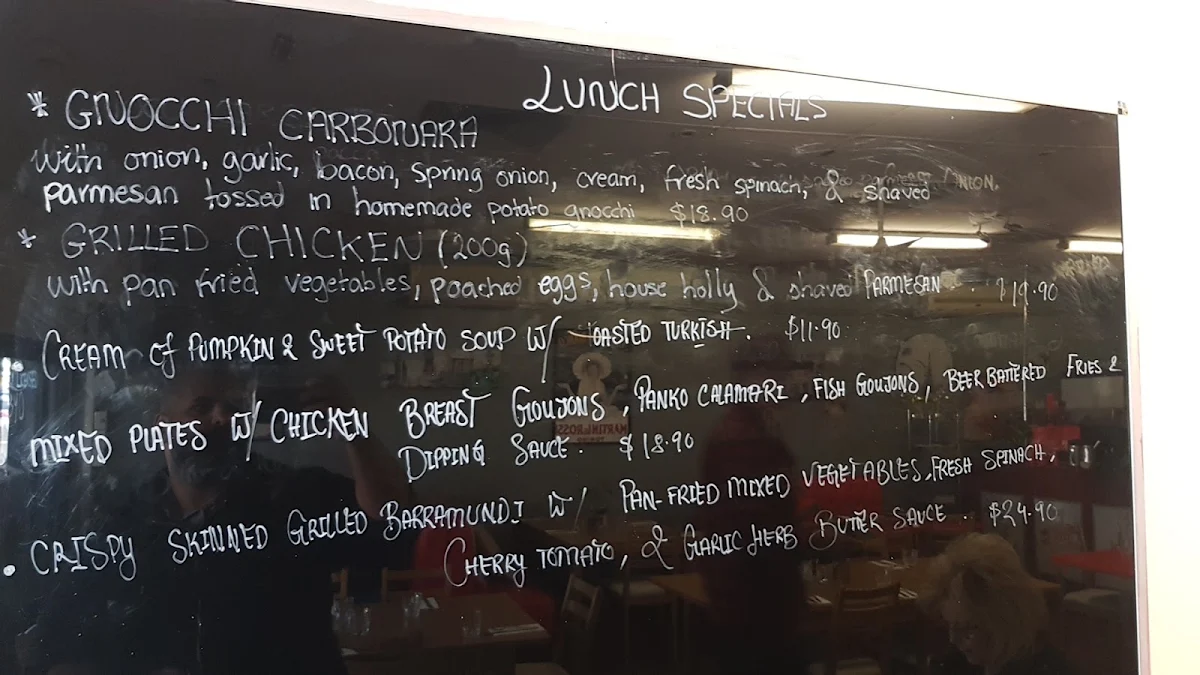 LUNCH SPECIALS
* GNOCCHI CARBONARA
with onion, garlic, bacon, spring onion, cream, fresh spinach, & shaved
parmesan tossed in homemade potato gnocchi $18.90
* GRILLED CHICKEN (200g)
with pan fried vegetables, poached eggs, house holly & shaved PARMESAN $19.90
CREAM OF PUMPKIN & SWEET POTATO SOUP W/ TOASTED TURKISH. $11.90
MIXED PLATES W/ CHICKEN BREAST GOUJONS, PANKO CALAMARI, FISH GOUJONS, BEER BATTERED FRIES &
DIPPING SAUCE. $18.90
• CRISPY SKINNED GRILLED BARRAMUNDI W/ PAN-FRIED MIXED VEGETABLES, FRESH SPINACH,
CHERRY TOMATO, & GARLIC HERB BUTTER SAUCE. $24.90